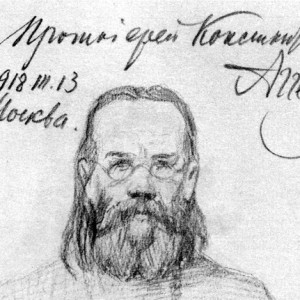 Протоіерей Констант
Аг
918 III. 13
Москва.